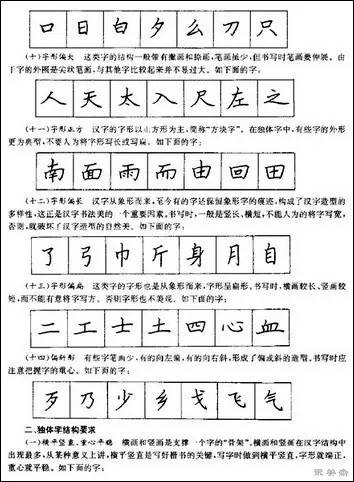 口日白夕么刀只
(十)字形偏大 这类字的结构一般带有撇画和捺画,笔画虽少,但书写时笔画要伸展。由
于字的外围是尖状笔画,与其他字比较起来并不显过大。如下面的字:
人天太入尺左之
(十一)字形正方 汉字的字形以正方形为主,简称“方块字”。在独体字中,有些字的外形
更为典型,不要人为将字形写长或写扁。如下面的字:
南面雨而由回田
(十二)字形偏长 汉字从象形而来,至今有的字还保留象形字的痕迹,构成了汉字造型的
多样性,这正是汉字书法美的一个重要因素。书写时,一般是竖长、横短,不能人为的将字写宽,
否则,就破坏了汉字造型的自然美。如下面的字:
了弓巾斤身月自
(十三)字形偏扁 这类字的字形也是从象形而来,字形呈扁形、书写时,横画较长、竖画较
短,而不能有意将字写方。否则字形也不美观。如下面的字:
二工士土四心血
(十四)偏斜形 有些字笔画少,有的向左偏,有的向右斜,形成了偏或斜的造型。书写时应
注意把握字的重心。如下面的字:
歹乃少乡戈飞气
二、独体字结构要求
(一)横平竖直、重心平稳 横画和竖画是支撑一个字的“骨架”,横画和竖画在汉字结构中
出现最多,从某种意义上讲,横平竖直是写好楷书的关键,写字时做到横平竖直,字形就端正,
重心就平稳。如下面的字: